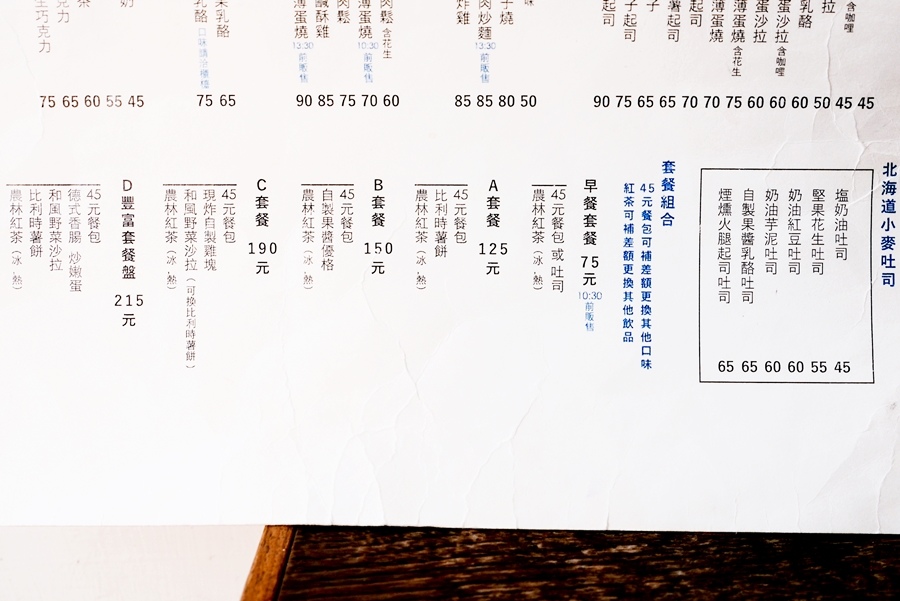 含咖哩
拉
乳酪
蛋沙拉 含咖哩
蛋沙拉
薄蛋燒 含花生
薄蛋燒
起司
薯起司
子
子起司
起司
90 75 65 65 70 70 75 60 60 60 50 45 45
味
子燒
肉炒麵 13:30前販售
炸雞
85 85 80 50
肉鬆 含花生
薄蛋燒 10:30前販售
肉鬆
鹹酥雞
薄蛋燒 13:30前販售
90 85 75 70 60
果乳酪
乳酪
75 65
奶
茶
克力
生巧克力
75 65 60 55 45
北海道小麥吐司
塩奶油吐司 45
堅果花生吐司 55
奶油紅豆吐司 60
奶油芋泥吐司 60
自製果醬乳酪吐司 65
煙燻火腿起司吐司 65
套餐組合
45元餐包可補差額更換其他口味
紅茶可補差額更換其他飲品
早餐套餐 75元 10:30前販售
45元餐包 或 吐司
農林紅茶(冰.熱)
A套餐 125元
45元餐包
比利時薯餅
農林紅茶(冰.熱)
B套餐 150元
45元餐包
自製果醬優格
農林紅茶(冰.熱)
C套餐 190元
45元餐包
現炸自製雞塊
和風野菜沙拉(可換比利時薯餅)
農林紅茶(冰.熱)
D豐富套餐盤 215元
45元餐包
德式香腸 炒嫩蛋
和風野菜沙拉
比利時薯餅
農林紅茶(冰.熱)